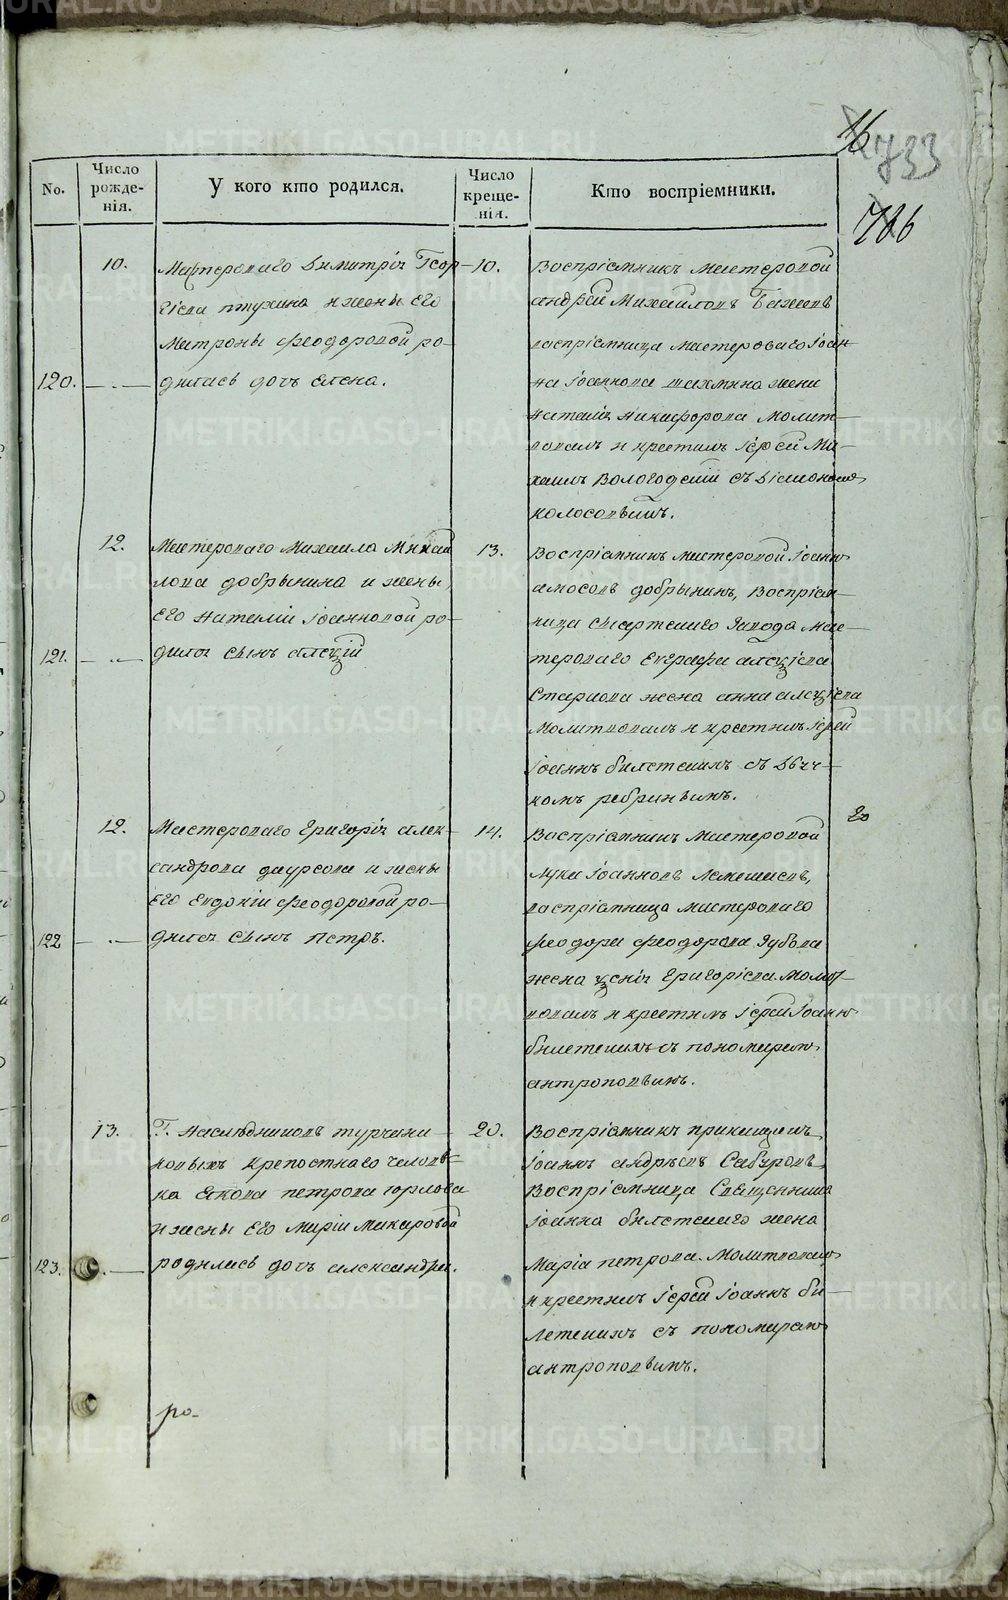 METRIKI.GASO-URAL.RU
16
733
706
No.
Число рожде-нія.
У кого кто родился.
Число креще-нія.
Кто воспріемники.
120.
10.
Мастероваго Димитрія Геор-
гіева птухина и жены его
Матроны феодоровой ро-
дилась дочь елена.
10.
Воспріемникъ мастеровой
андрей Михайловъ Бажовъ
воспріемница мастероваго Іоан-
на Іоаннова жена
наталія никифорова молит-
вовалъ и крестилъ Іерей Ми-
хаилъ Вологодскій съ Діакономъ
колосовымъ.
121.
12.
Мастероваго Михаила Михай
лова добрынина и жены
Его наталіи Іоанновой ро-
дился сынъ алексій
13.
Воспріемникъ мастеровой Іоаннъ
амосовъ добрынинъ, Воспріем-
ница сысертскаго завода мас-
тероваго Евграфа алексіева
Старкова жена анна алексіева
Молитвовалъ и крестилъ Іерей
Іоаннъ билетскихъ съ Дьяч-
комъ ребринымъ.
122
12.
Мастероваго григорія алек-
сандрова даурсова и жены
Его евдокіи феодоровой ро-
дился сынъ петръ.
14.
Воспріемникъ мастеровой
лука Іоанновъ
воспріемница мастероваго
феодора феодорова Зубова
жена ксенія григоріева. молит-
вовалъ и крестилъ Іерей Іоаннъ
билетскихъ съ пономаремъ
антроповымъ.
Ео
123.
13.
Г. наслѣдниковъ турчани-
новыхъ крепостнаго челове-
ка Якова петрова юрлова
и жены его Маріи макаровой
родилась дочь александра.
20.
Воспріемникъ прикащикъ
Іоаннъ андреевъ Сабуровъ
Воспріемница Священника
Іоанна билетскаго жена
Марія петрова. Молитвовалъ
и крестилъ Іерей Іоаннъ би-
летскихъ съ пономаремъ
антроповымъ.
ро-